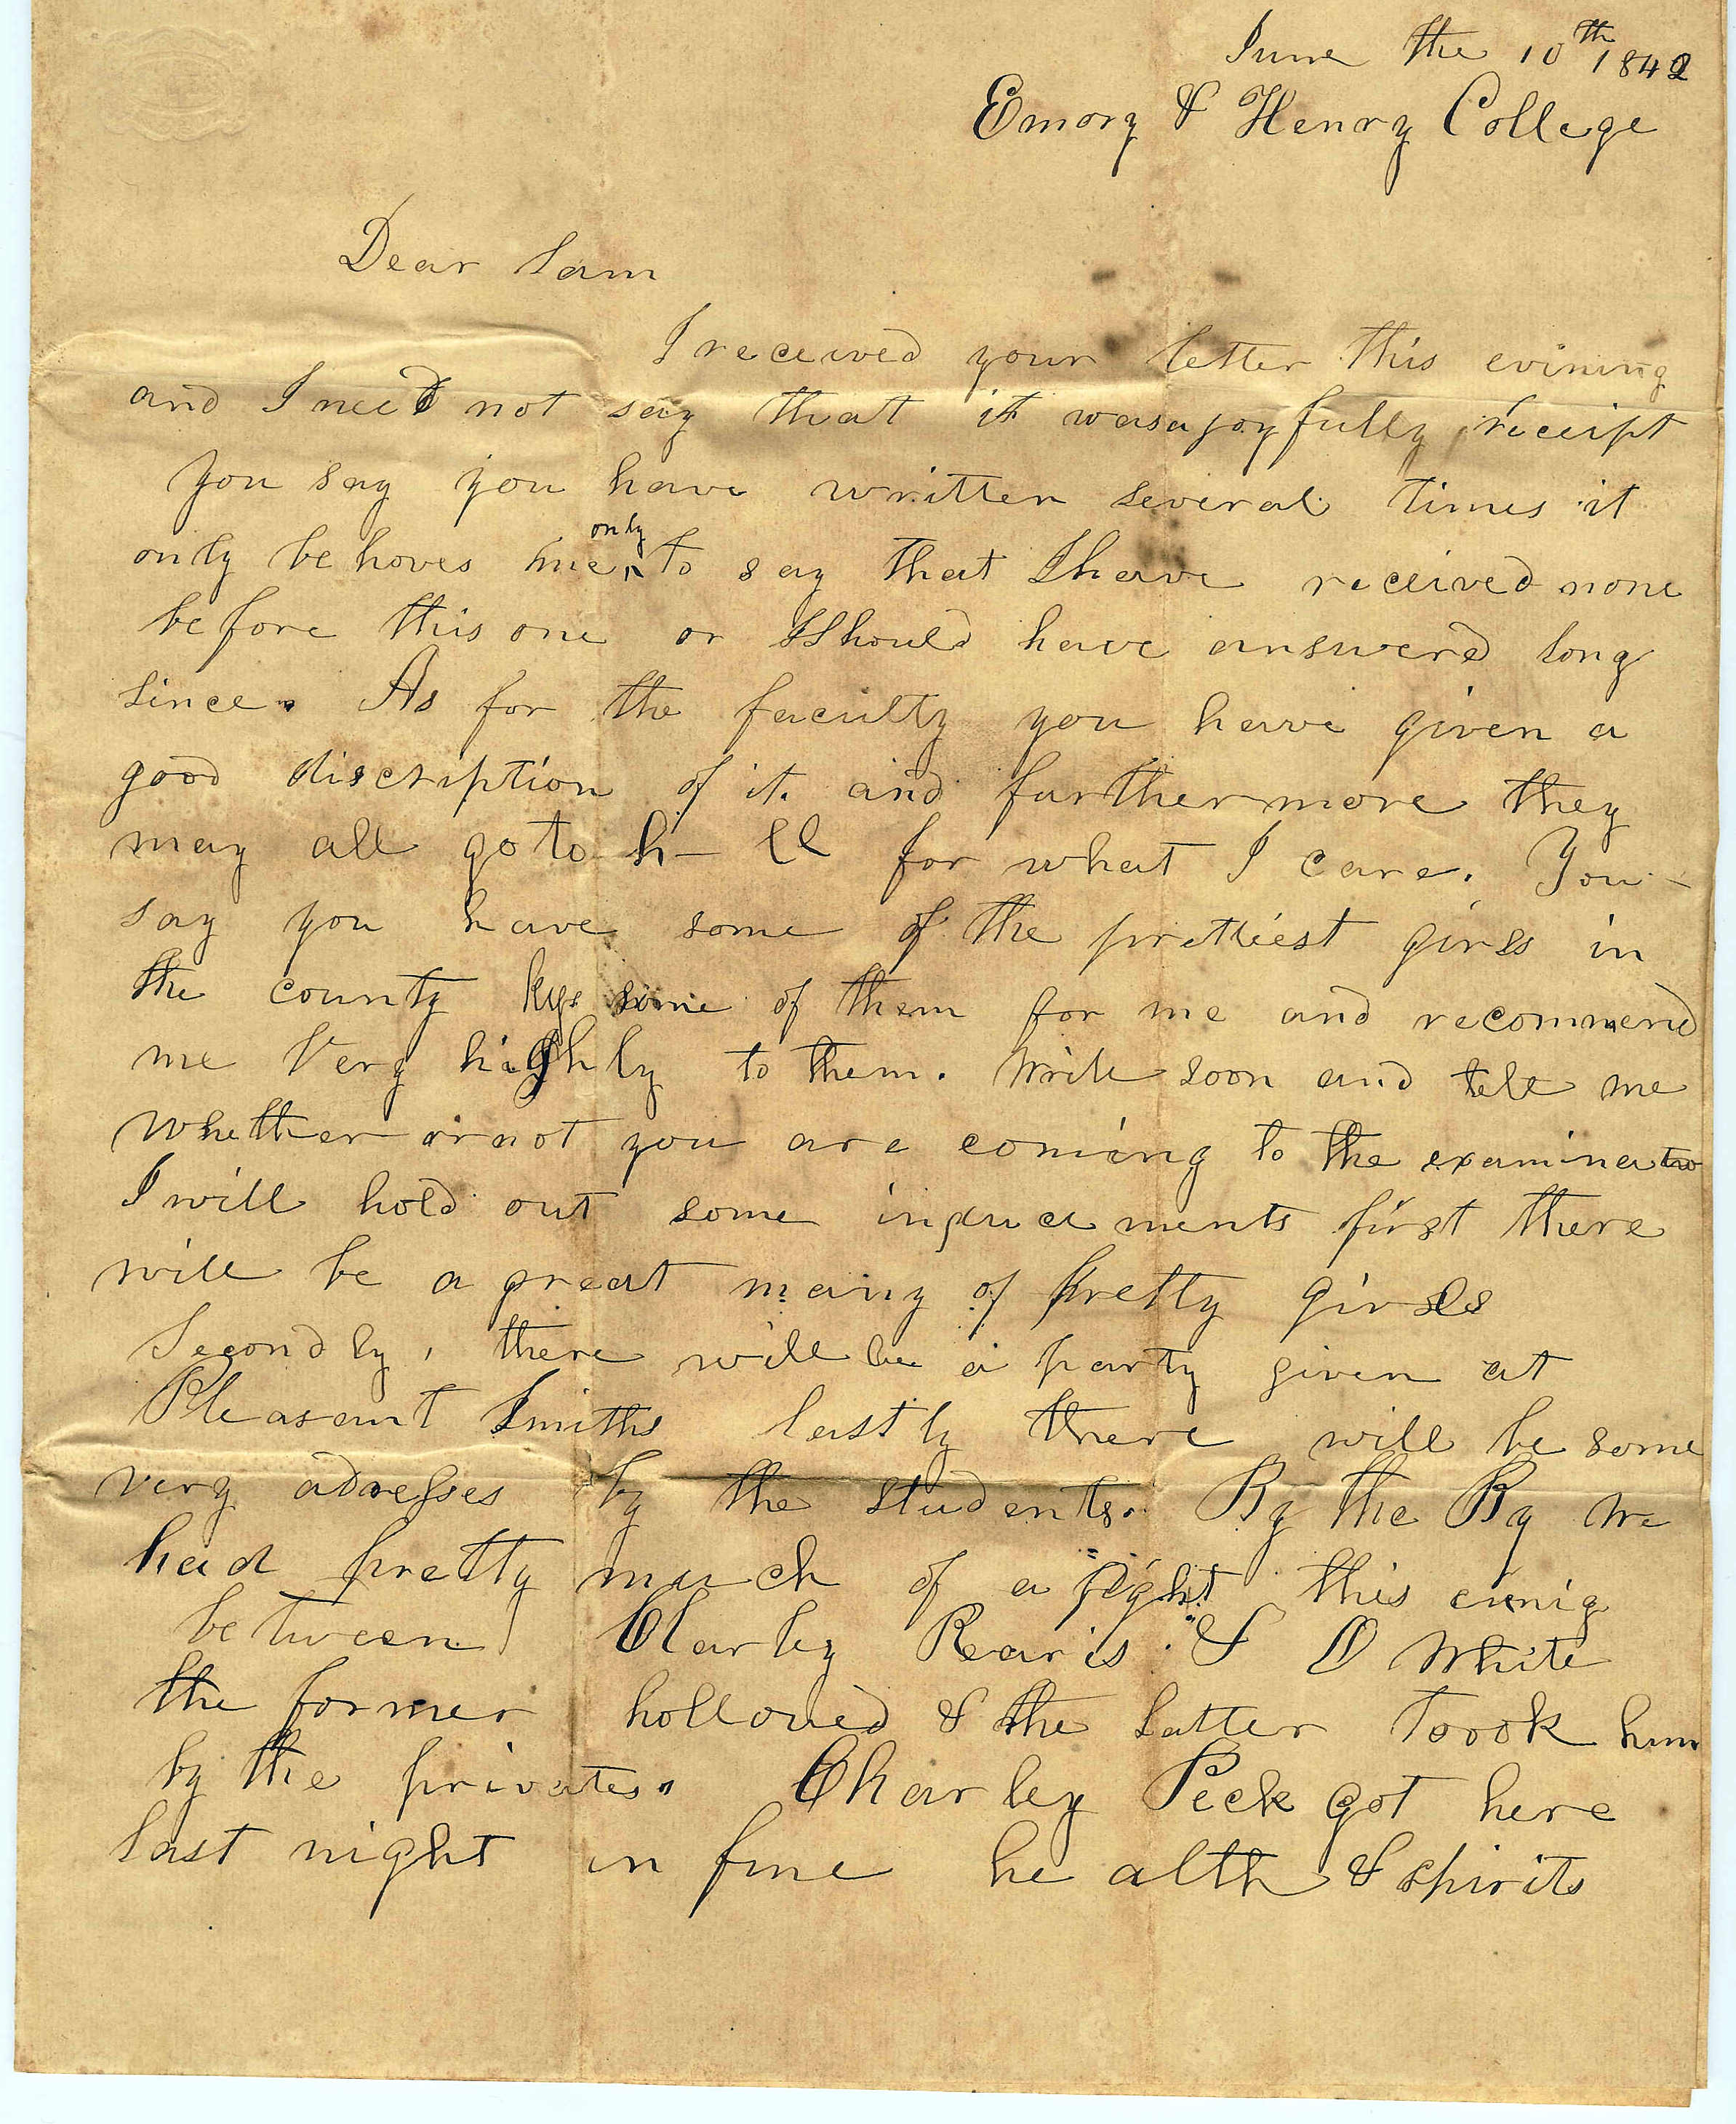 June the 10th 1842
Emory & Henry College
Dear Sam
I received your letter this evining
and I need not say that it was a joyfully receipt
you say you have written several times it
only be hoves me only to say that I have received none
before this one or I should have answerd long
since. As for the faculty you have given a
good discription of it. and furthermore they
may all go to h—ll for what I care. You
say you have some of the prettiest girls in
the county some of them for me and recommend
me Very highly to them. Write soon and tell me
whether or not you are coming to the
I will hold out some inducements first there
will be a great many of pretty girls
Secondly, there will be a party given at
Pleasant Smiths lastly there will be some
very adresses by the students. By the By we
had pretty much of a fight this
between Charley & D White
the former & the latter toook him
by the privates. Charley Peck got here
last night in fine he alth & spirits